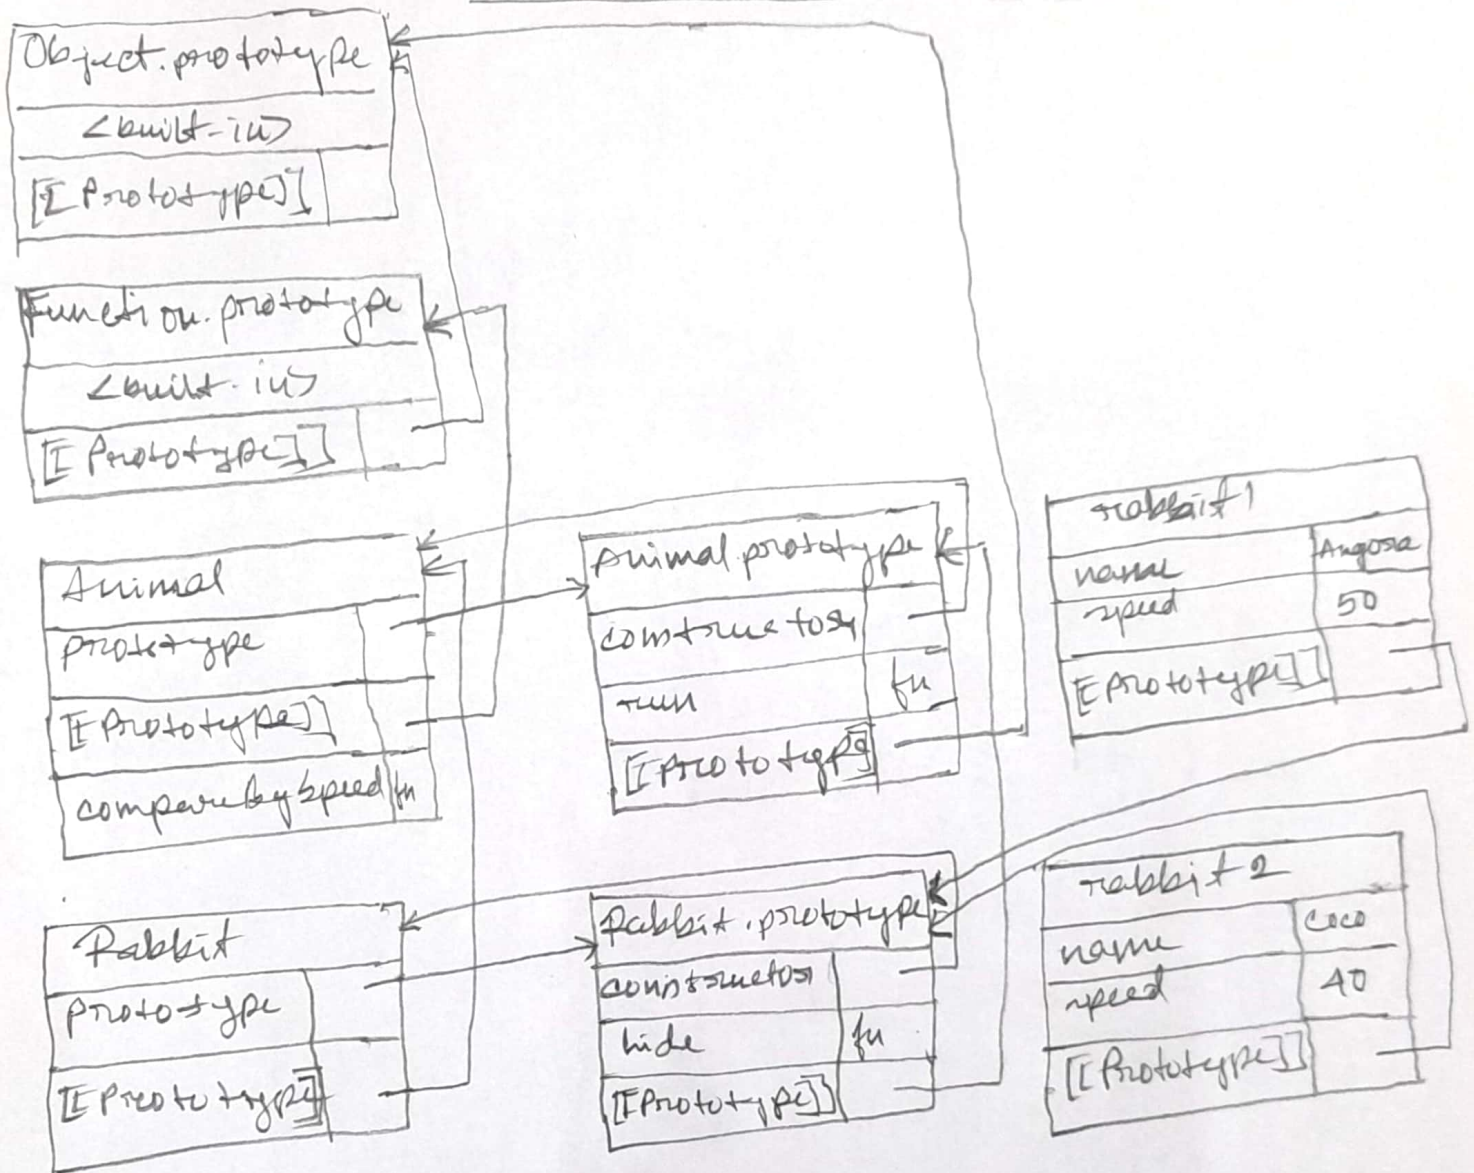 Object.prototype
<built-in>
[[Prototype]]
Function.prototype
<built-in>
[[Prototype]]
Animal
prototype
[[Prototype]]
compareBySpeed fn
Animal.prototype
constructor
run fn
[[Prototype]]
rabbit1
name Angora
speed 50
[[Prototype]]
Rabbit
prototype
[[Prototype]]
Rabbit.prototype
constructor
hide fn
[[Prototype]]
rabbit2
name Coco
speed 40
[[Prototype]]